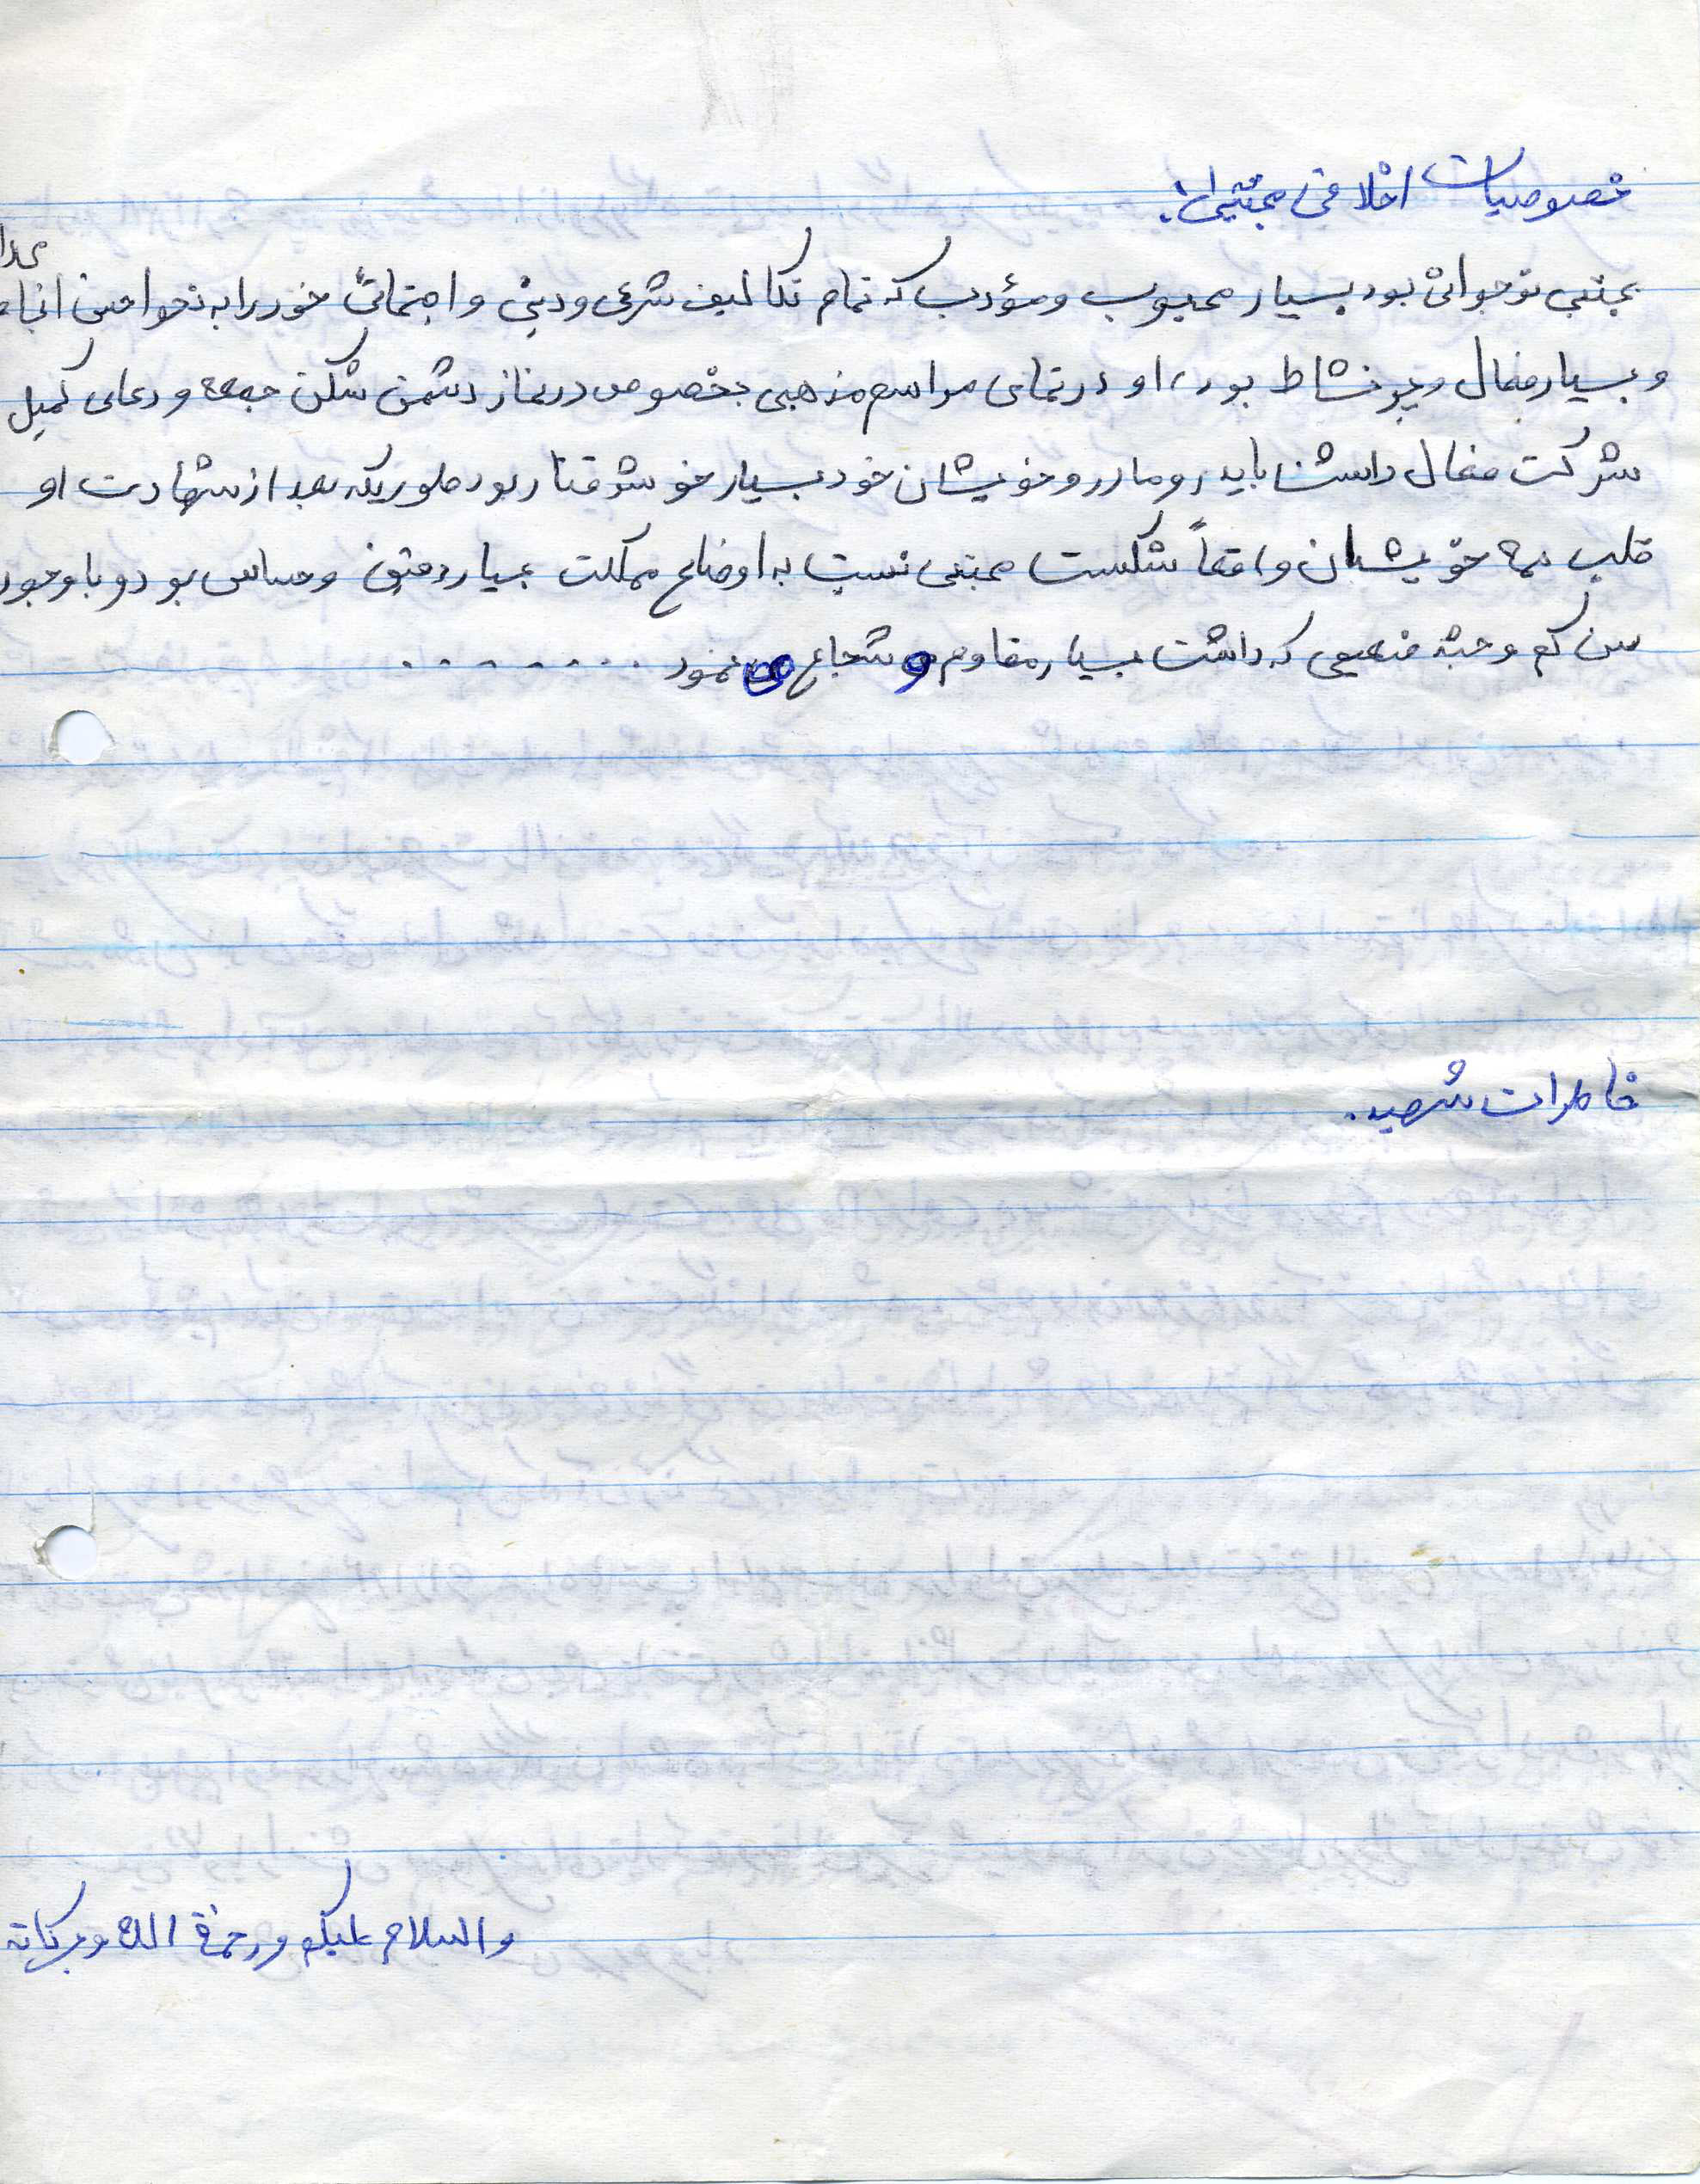 خصوصیات اخلاقی مجتبی:
مجتبی نوجوانی بود بسیار محبوب و مؤدب که تمام تکالیف شرعی و دینی و اجتماعی خود را به نحو احسن انجام
و بسیار فعال و پر نشاط بود، او در تمامی مراسم مذهبی بخصوص در نماز دشمن شکن جمعه و دعای کمیل
شرکت فعال داشت با پدر و مادر و خویشان خود بسیار خوشرفتار بود طوریکه بعد از شهادت او
قلب همه خویشان واقعاً شکست مجتبی نسبت به اوضاع مملکت بسیار دقیق و حساس بود و با وجود
سن کم و جثه ضعیفی که داشت بسیار مقاوم و شجاع می نمود . . . . . . . .
خاطرات شهید.
والسلام علیکم و رحمة الله و برکاته